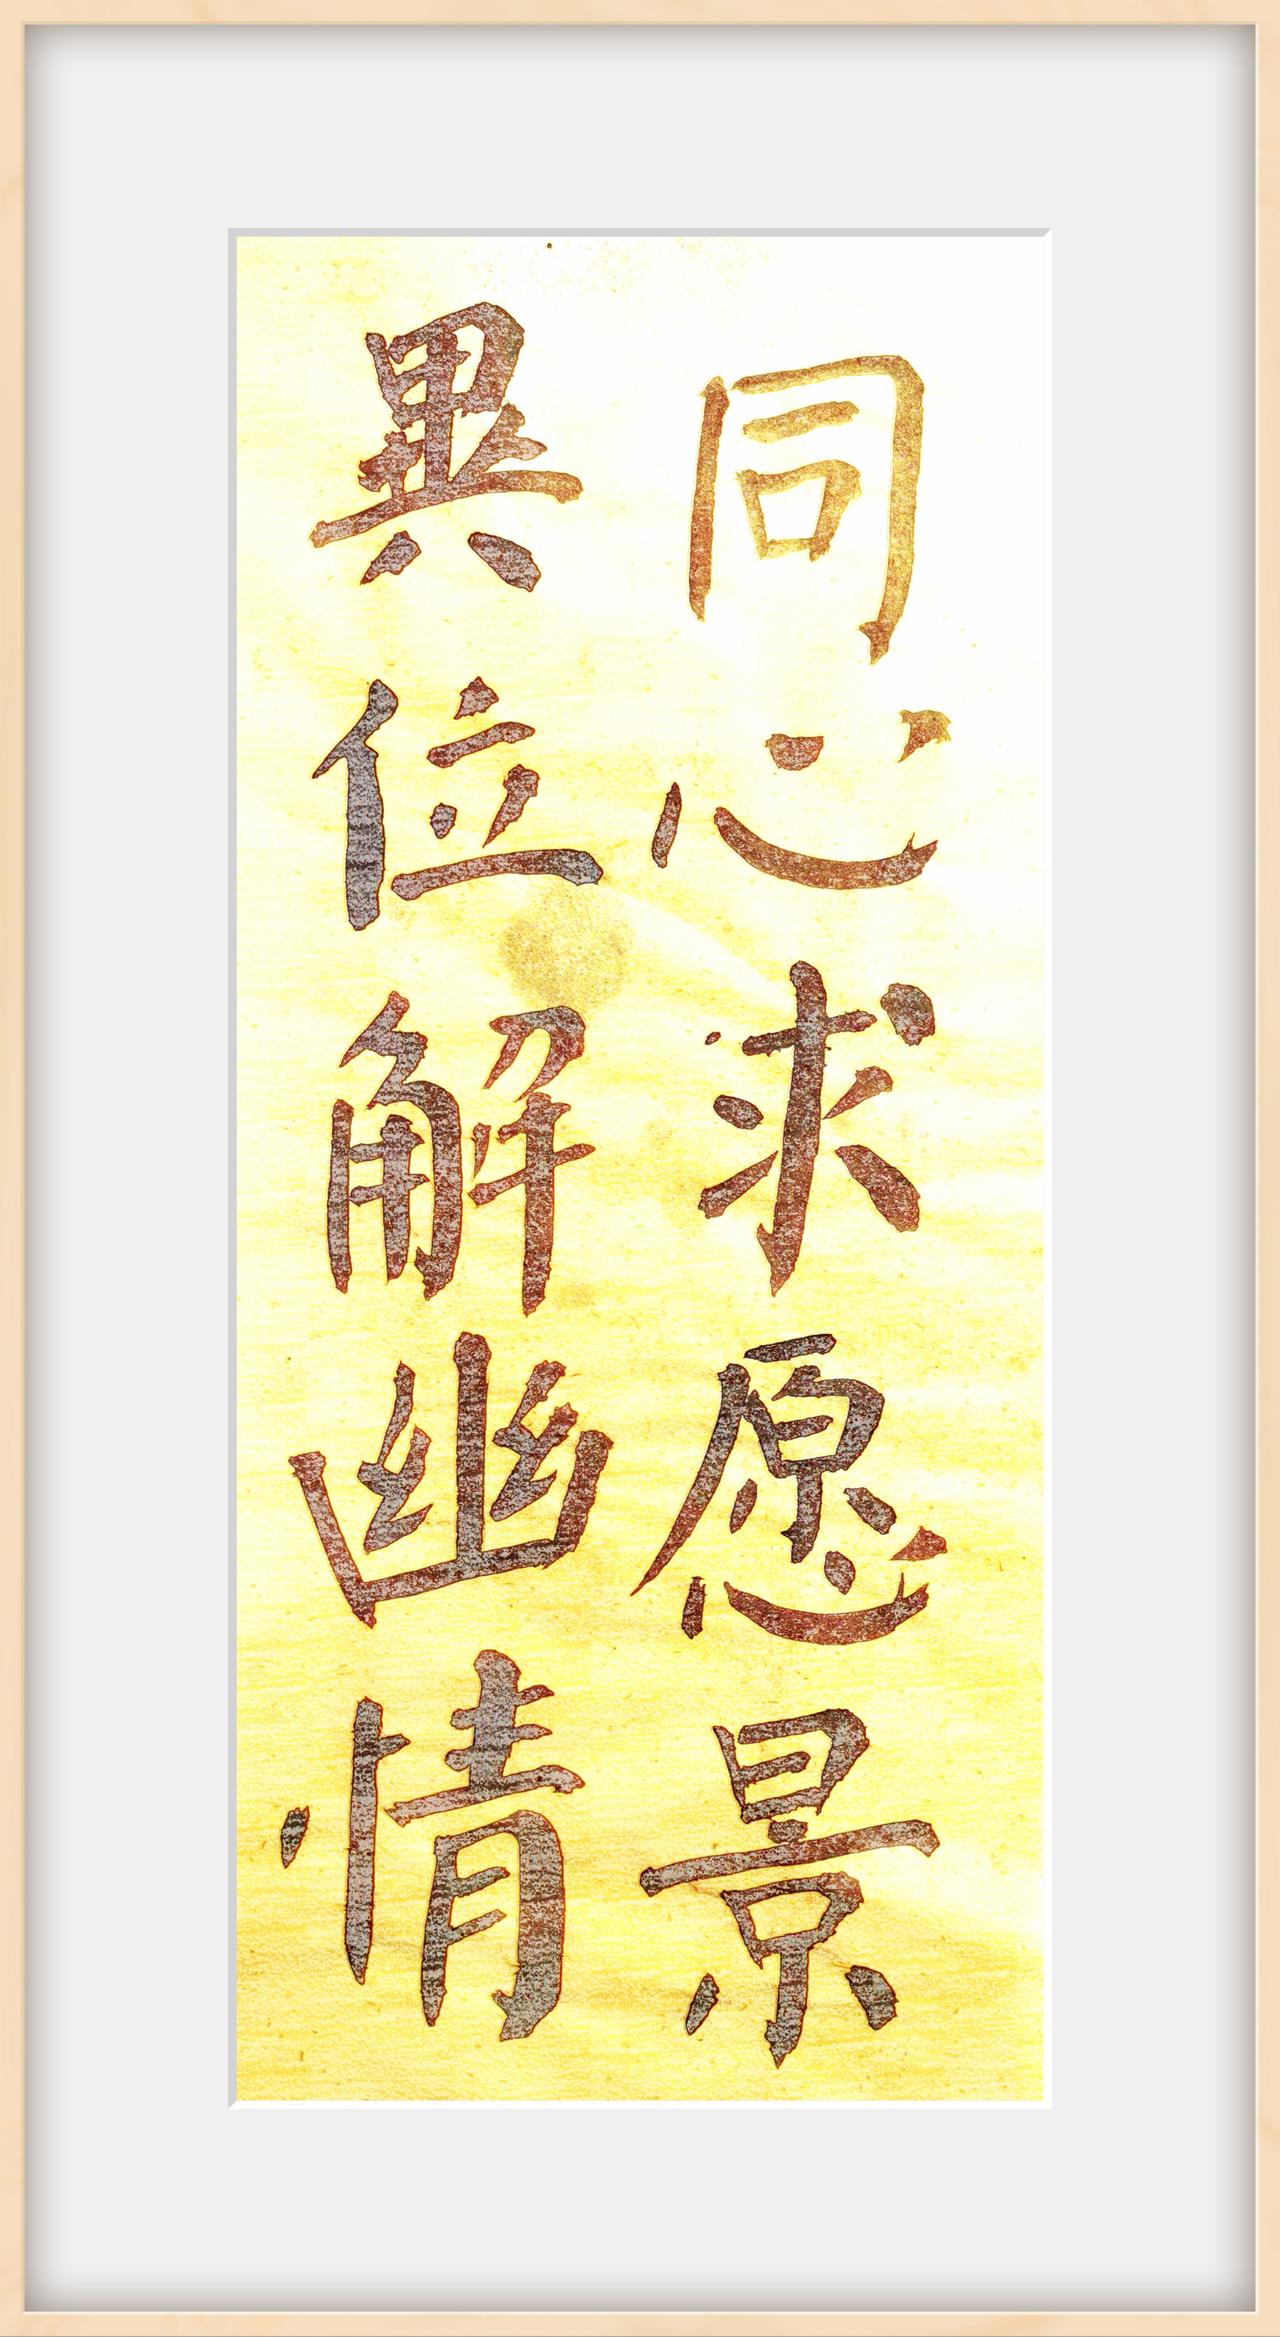 同心求愿景
異位解幽情